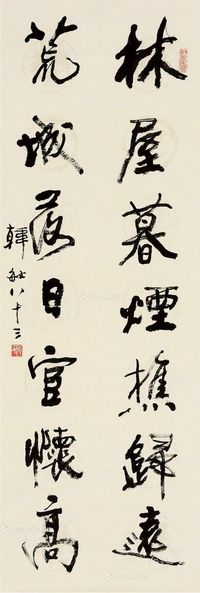 林屋暮煙樵歸遠
荒城落日宦懷高
韓敏八十三